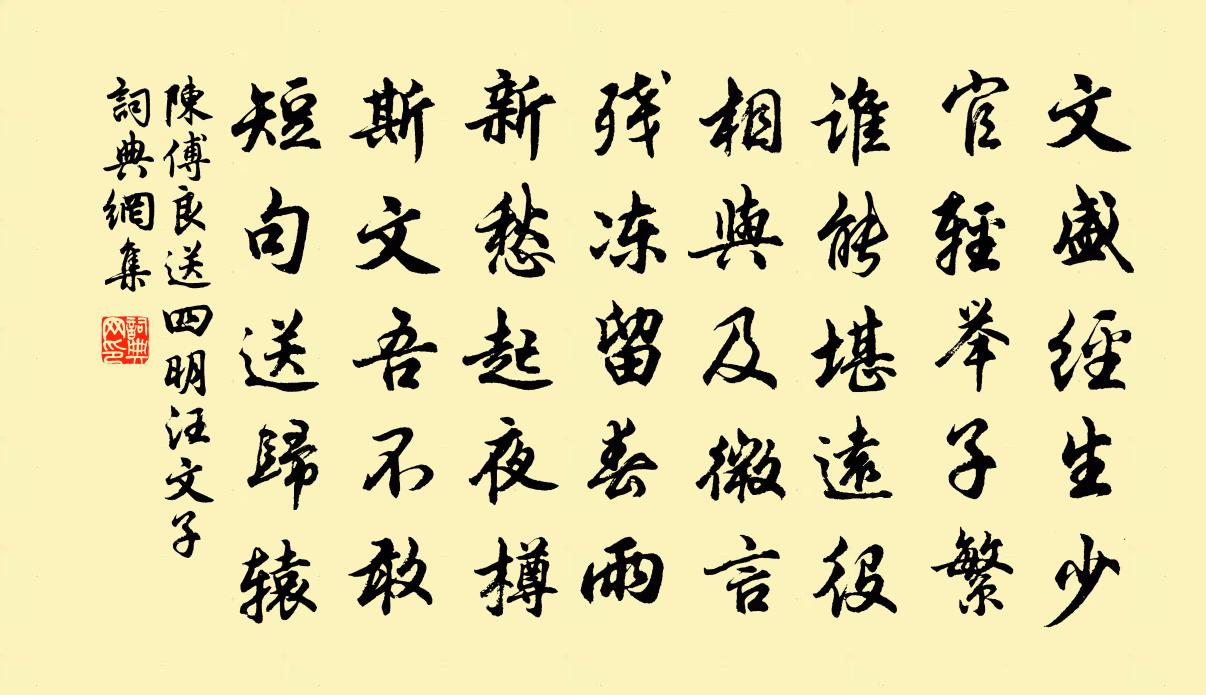 文盛經生少
官輕举子繁
谁能堪遠役
相與及微言
残冻留春雨
新愁起夜樽
斯文吾不敢
短句送歸辕
陳傅良送四明汪文子
詞典網集
詞典网印